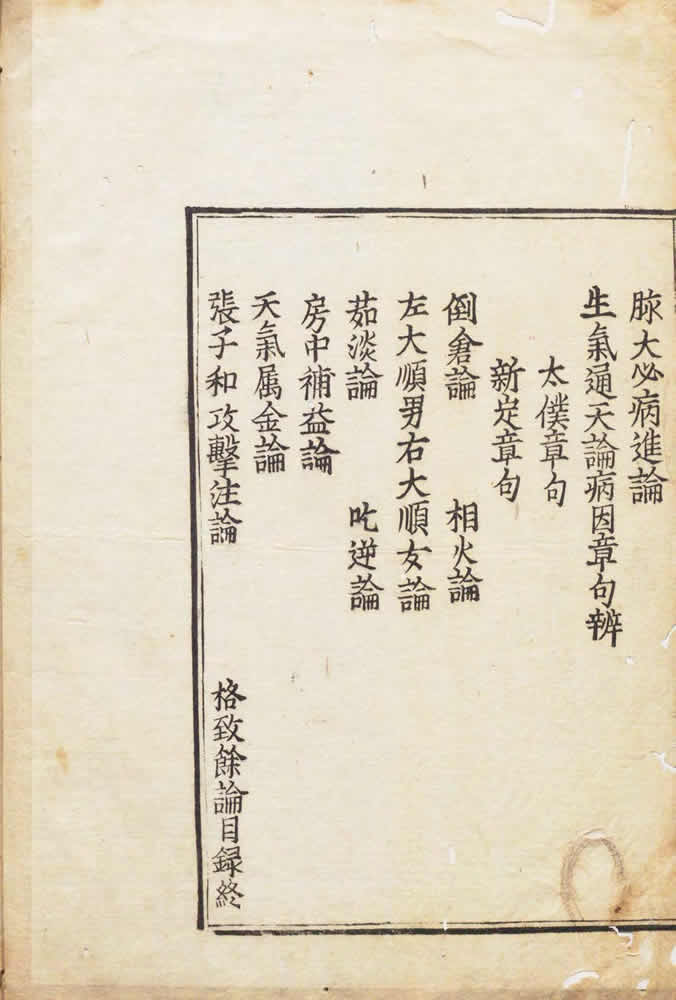 脉大必病進論
生氣通天論病因章句辨
太僕章句
新定章句
倒倉論 相火論
左大順男右大順女論
茹淡論 吃逆論
房中補益論
天氣属金論
張子和攻擊注論
格致餘論目録終